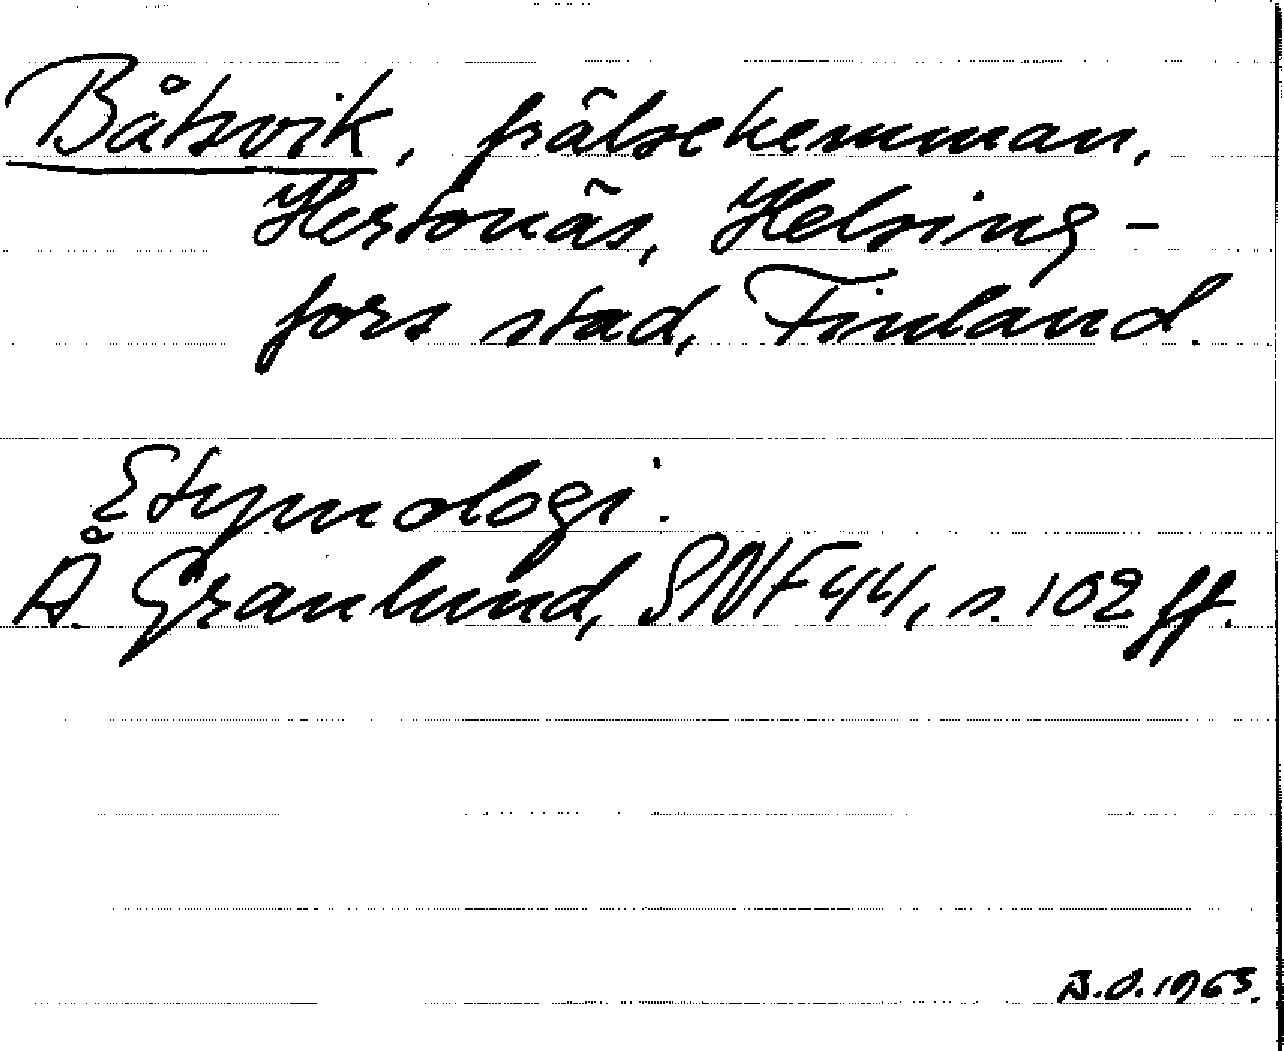 Båtsvik, frälsehemman,
Hertonäs, Helsing-
fors stad, Finland.
Etymologi.
Å. Granlund, SNF 44, s. 102 ff.
B.O. 1963.